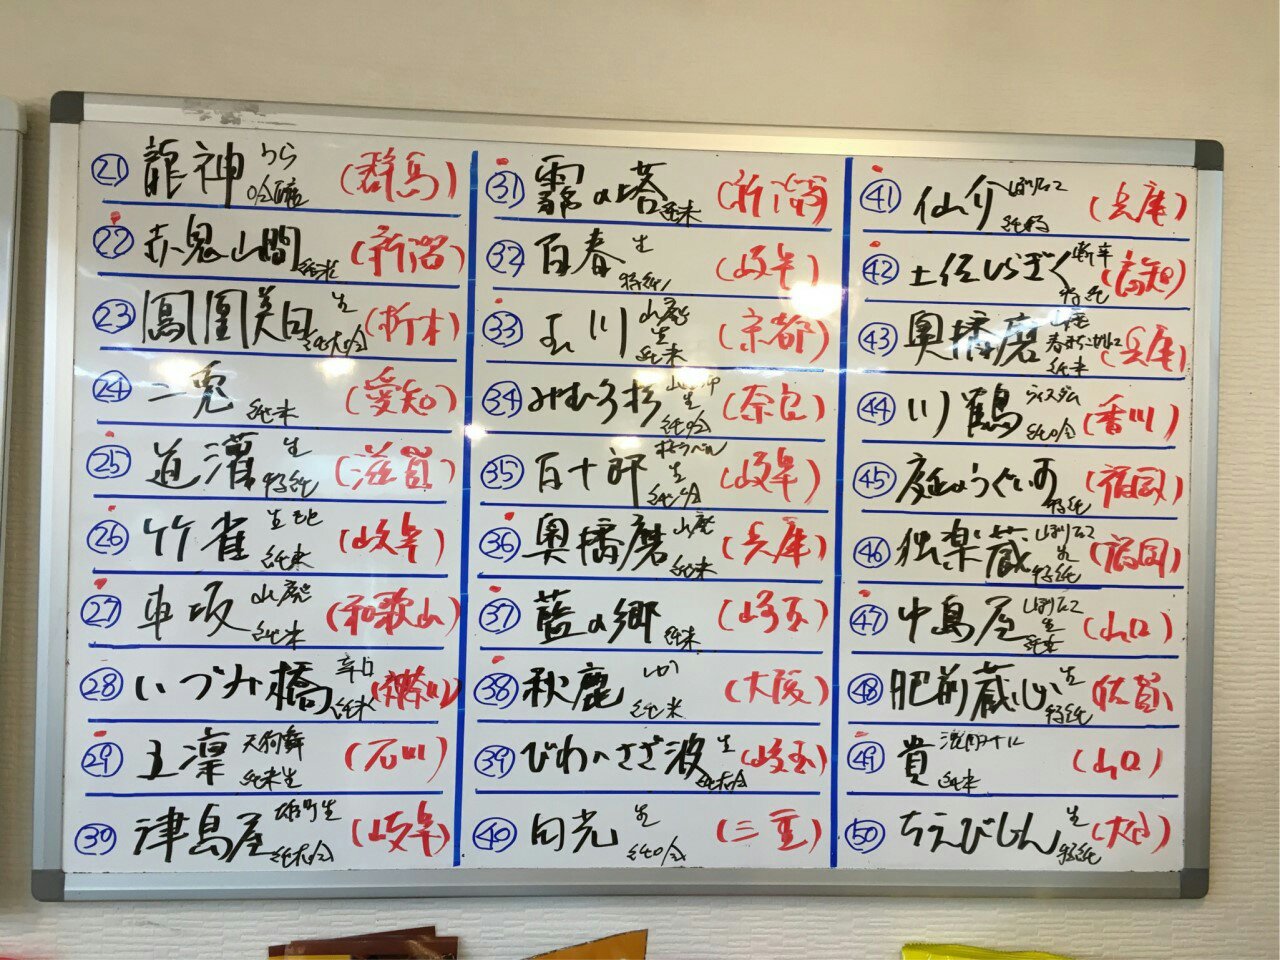 ㉑ 龍神 (群馬)
㉒ 赤鬼山間 純米 (新潟)
㉓ 鳳凰美田 生 純大吟 (栃木)
㉔ 二兎 純米 (愛知)
㉕ 道灌 生 特純 (滋賀)
㉖ 竹雀 純米 (岐阜)
㉗ 車坂 山廃 純米 (和歌山)
㉘ いづみ橋 辛口 純米 (神奈川)
㉙ 五凛 天狗舞 純米生 (石川)
㉚ 津島屋 雄町生 純大吟 (岐阜)
㉛ の塔 純米 (新潟)
㉜ 百春 生 特純 (岐阜)
㉝ 玉川 山廃 生 純米 (京都)
㉞ みむろ杉 生 純吟 (奈良)
㉟ 百十郎 生 純吟 (岐阜)
㊱ 奥播磨 山廃 純米 (兵庫)
㊲ 藍の郷 純米 (埼玉)
㊳ 秋鹿 純米 (大阪)
㊴ びわのさざ波 生 純大吟
㊵ 日光 生 純吟 (三重)
㊶ 仙介 しぼりたて (兵庫)
㊷ 土佐しらぎく 特純 (高知)
㊸ 奥播磨 純米 (兵庫)
㊹ 川鶴 純吟 (香川)
㊺ 庭のうぐいす 特純 (福岡)
㊻ 独楽蔵 しぼりたて 生 特純 (福岡)
㊼ 中島屋 しぼりたて 生 純米 (山口)
㊽ 肥前蔵心 生 特純 (佐賀)
㊾ 貴 純米 (山口)
㊿ ちえびじん 生 特純 (大分)